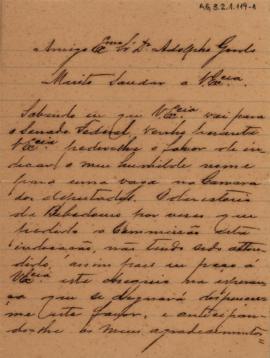 AG 3.2.1.119-1
Amigo Exmo Sr. Dr. Adolpho Gordo
Muito Saudar a V. Excia.
Sabendo eu que V. Excia vai para
o Senado Federal, venho perante
V. Excia. pedir-lhe o favor de in
dicar o meu humilde nome
para uma vaga na Camara
dos deputados. O directorio
de Ribeirão por vezes que
pedido a Commissão esta
indicação, não tendo sido atten
dido, assim pois eu peço á
V. Excia este obsequio na esperan
ça que se dignará dispensar-
me este favor, e anticipan-
do-lhe os meus agradecimentos